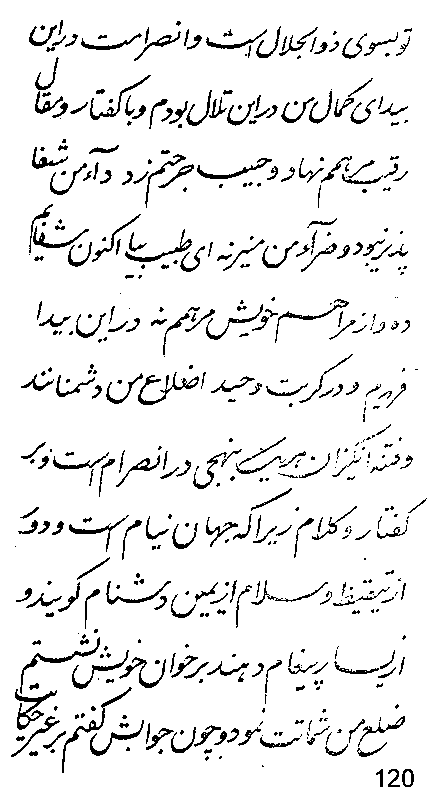 تو بسوی ذوالجلال است و انصرامت در این
بیدای کمال من در این تلال بودم و با گفتار و مقال
رقیب مرهم نهاد و حبیب جرحتم زد داء من شفا
پذیر نبود و ضراء من منیر نه ای طبیب بیا اکنون شفایم
ده و از مراهم خویش مرهم نه در این بیدا
فریدم و در کربت وحید اضلاع من دشمنانند
و فتنه انگیزان هریک بنهجی در انصرام است و بر
گفتار و کلام زیرا که جهان نیام است و دور
از تیقیظ و سلام از یمین دشنام گویند و
از یسار پیغام دهند بر خوان خویش نشستم
ضلع من شماتت نمود و چون جوابش گفتم بر غیر حکایت
120